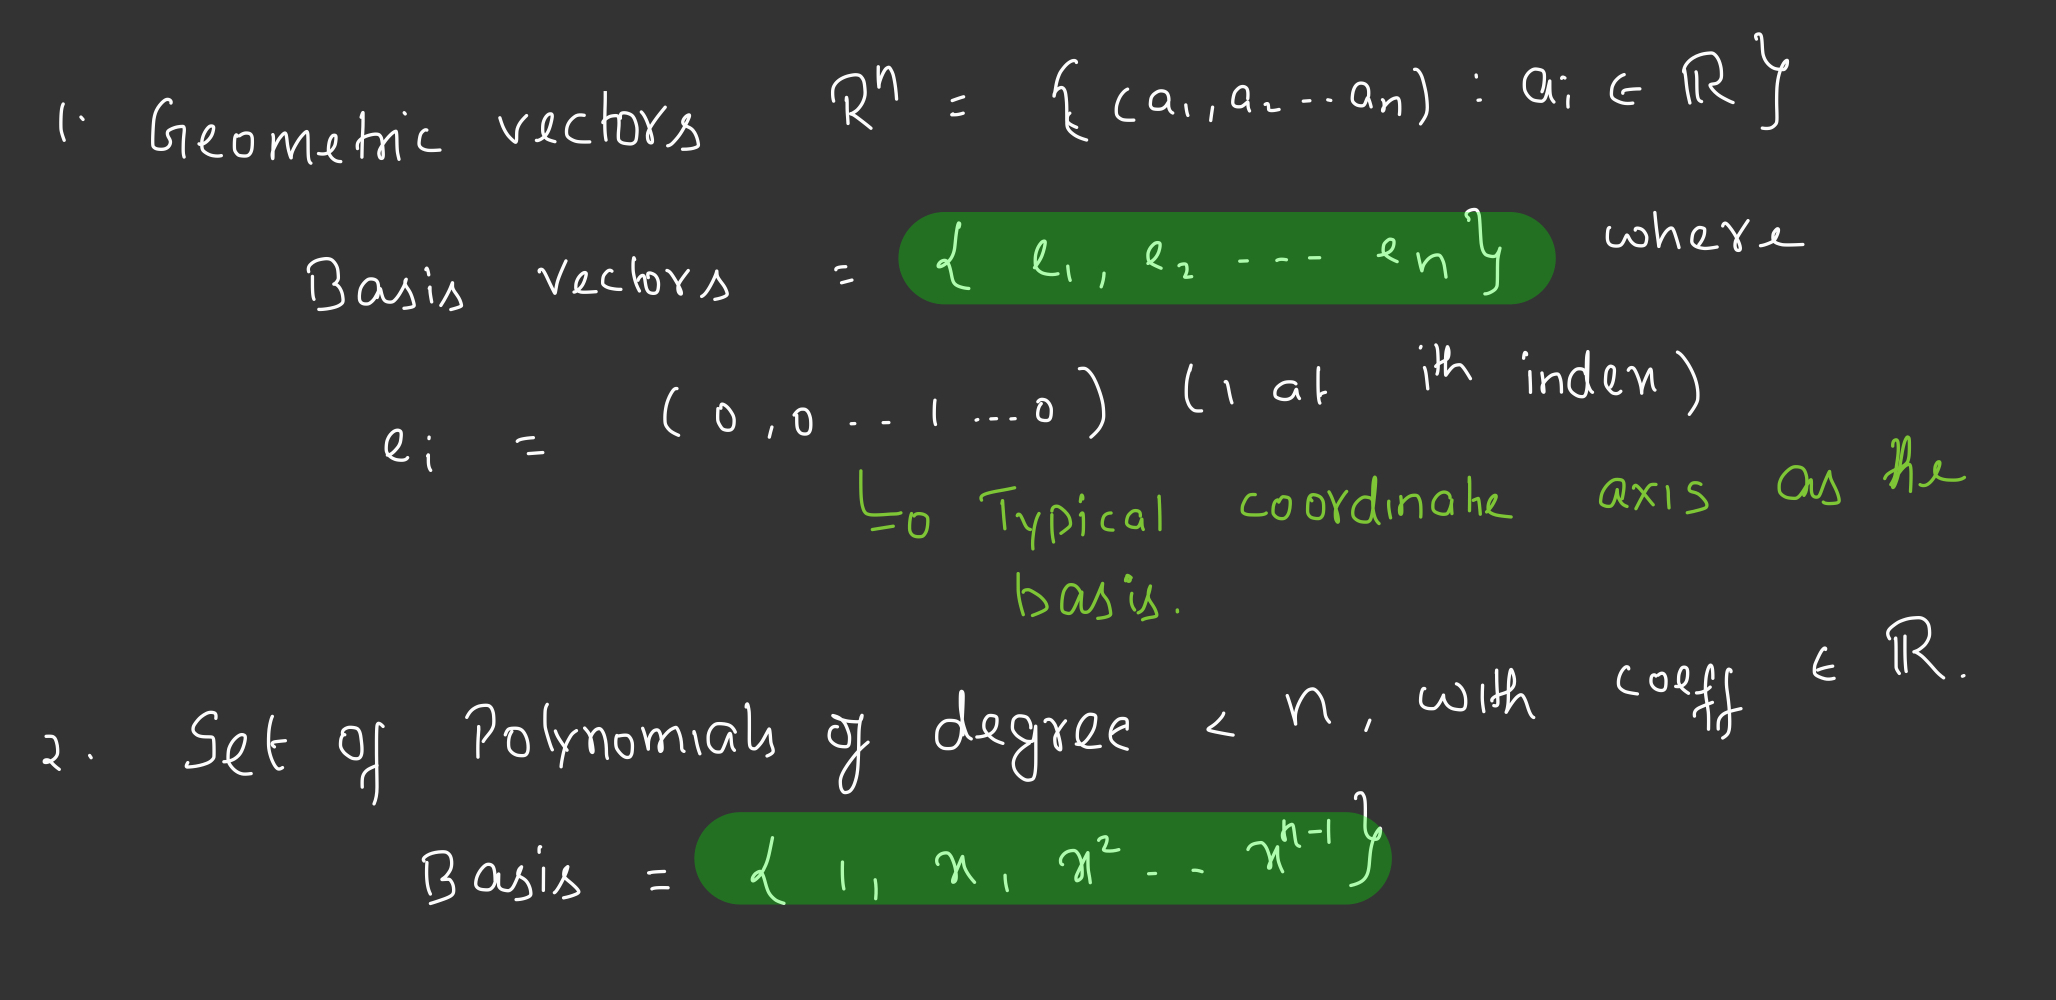 1. Geometric vectors Rⁿ = { (a₁, a₂ .. aₙ) : aᵢ ∈ ℝ }
Basis vectors = { e₁, e₂ --- eₙ } where
eᵢ = ( 0 , 0 .. 1 ... 0 ) ( 1 at ith index )
↳ Typical coordinate axis as the
basis.
2. Set of Polynomials of degree < n, with coeff ∈ ℝ.
Basis = { 1, x, x² .. xⁿ⁻¹ }